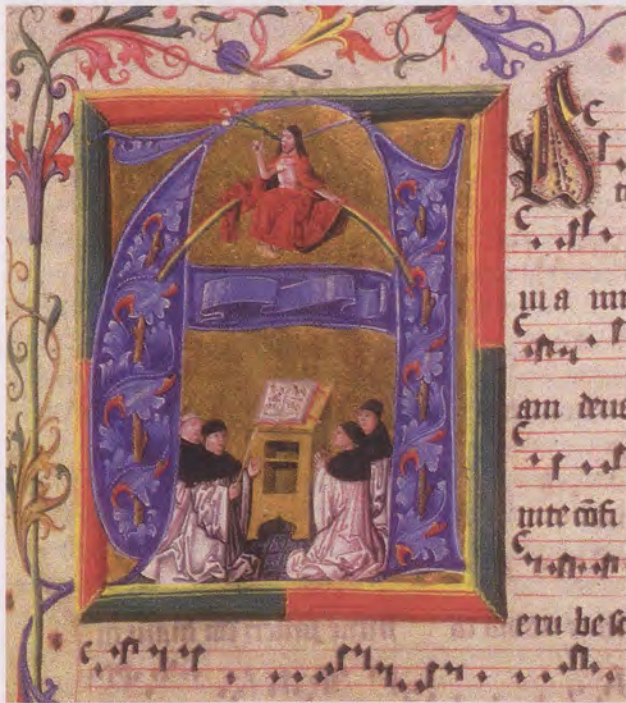 A
ui a nim
am deus
inte cõfi
eru besc